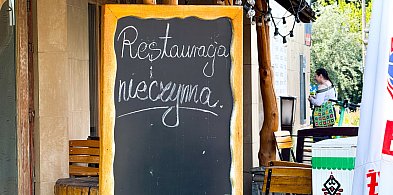 Restauracja
nieczynna.